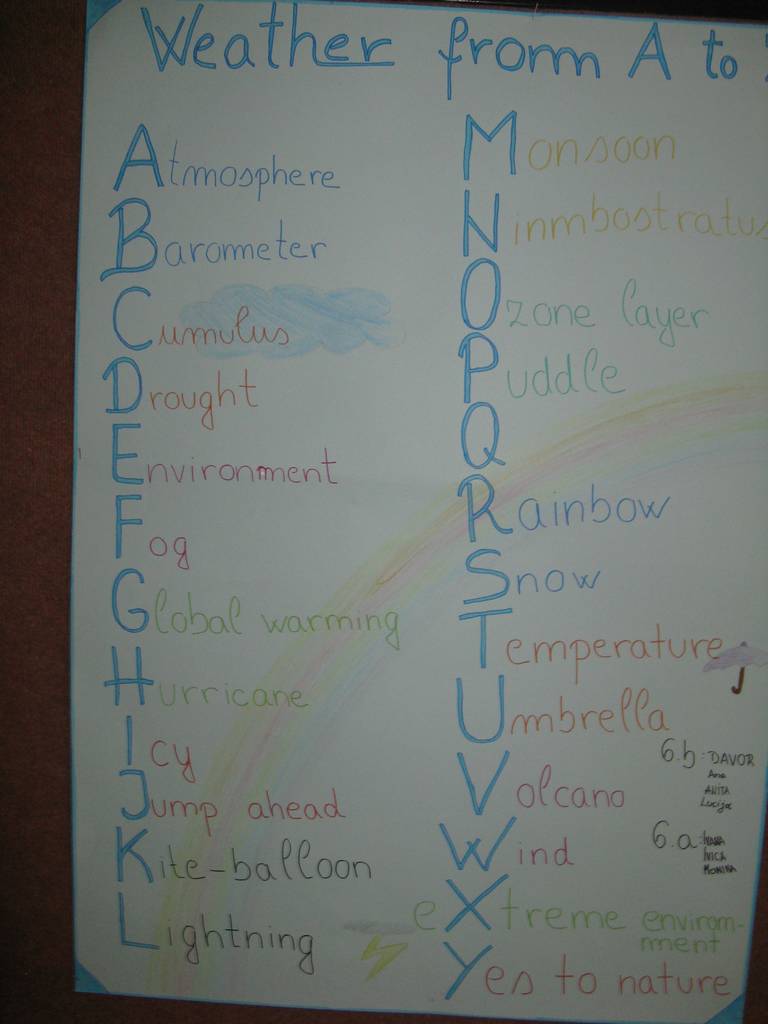 Weather from A to
Atmosphere
Barometer
Cumulus
Drought
Environment
Fog
Global warming
Hurricane
Icy
Jump ahead
Kite-balloon
Lightning
Monsoon
Ninmbostratus
Ozone layer
Puddle
Q
Rainbow
Snow
Temperature
Umbrella
Volcano
Wind
eXtreme environm-
nment
Yes to nature
6.b: DAVOR
Ana
ANITA
Lucija
6.a:
IVICA
MONIKA